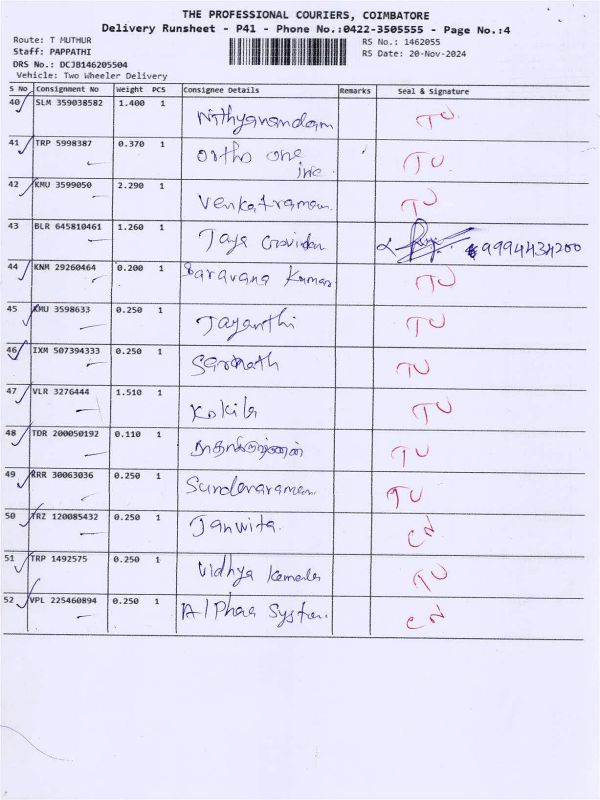 THE PROFESSIONAL COURIERS, COIMBATORE
Delivery Runsheet - P41 - Phone No.:0422-3505555 - Page No.:4
Route: T MUTHUR RS No.: 1462055
Staff: PAPPATHI RS Date: 20-Nov-2024
DRS No.: DCJB146205504
Vehicle: Two Wheeler Delivery
S No Consignment No Weight PCS Consignee Details Remarks Seal & Signature
40 SLM 359038582 1.400 1 Nithyanandam TU
41 TRP 5998387 0.370 1 Ortho one TU
inc
42 KMU 3599050 2.290 1 Venkatraman TU
43 BLR 645810461 1.260 1 Jaya Govindan 9994434200
44 KNM 29260464 0.200 1 Saravana Kumar TU
45 KMU 3598633 0.250 1 Jayanthi TU
46 IXM 507394333 0.250 1 Sarinath TU
47 VLR 3276444 1.510 1 Kokila TU
48 TDR 200050192 0.110 1 TU
49 KRR 30063036 0.250 1 Sundararaman TU
50 TRZ 120085432 0.250 1 Janwita CN
51 TRP 1492575 0.250 1 Vidhya TU
52 VPL 225460894 0.250 1 Alphaa System CN